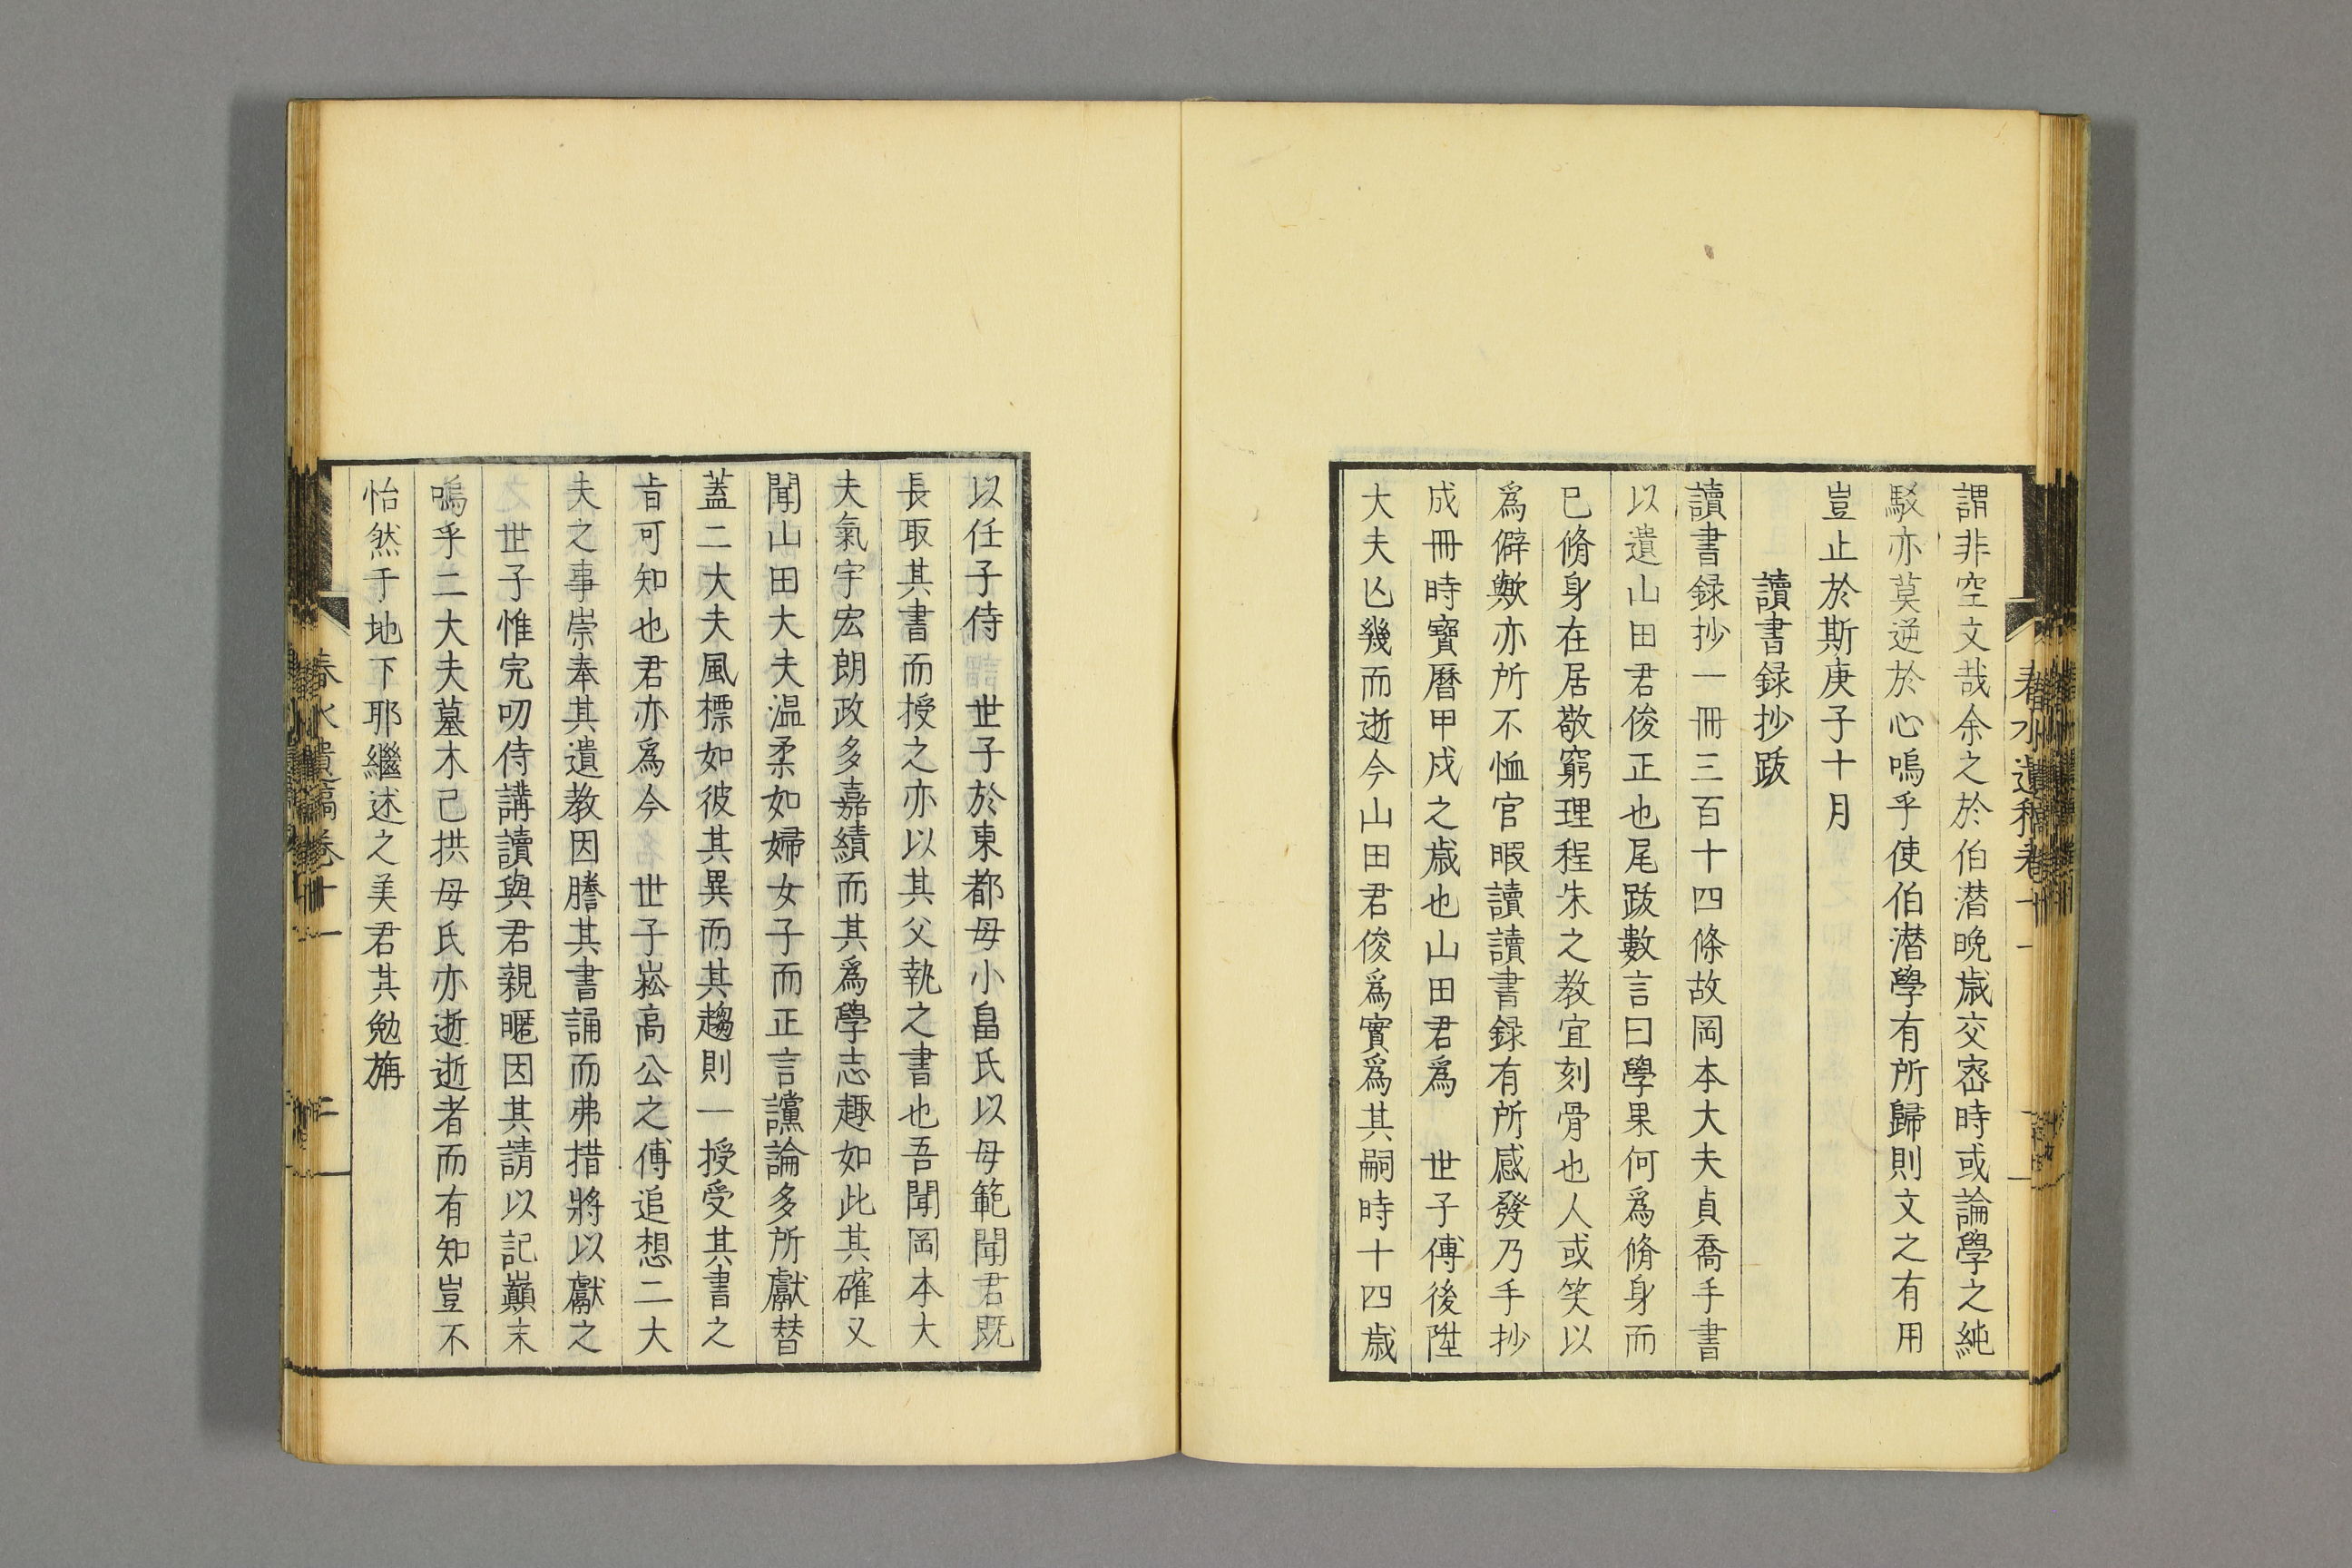 謂非空文哉余之於伯潛晩歳交密時或論學之純
駁亦莫逆於心嗚乎使伯潛學有所歸則文之有用
豈止於斯庚子十月
讀書録抄跋
讀書録抄一冊三百十四條故岡本大夫貞喬手書
以遺山田君俊正也尾跋數言曰學果何爲脩身而
已脩身在居敬窮理程朱之教宜刻骨也人或笑以
爲僻歟亦所不恤官暇讀讀書録有所感發乃手抄
成冊時寶曆甲戌之歳也山田君爲 世子傅後陞
大夫亾幾而逝今山田君俊爲實爲其嗣時十四歳
以任子侍 世子於東都母小畠氏以母範聞君既
長取其書而授之亦以其父執之書也吾聞岡本大
夫氣宇宏朗政多嘉績而其爲學志趣如此其確又
聞山田大夫温柔如婦女子而正言讜論多所獻替
蓋二大夫風標如彼其異而其趨則一授受其書之
旨可知也君亦爲今 世子崧高公之傅追想二大
夫之事崇奉其遺教因謄其書誦而弗措將以獻之
世子惟完叨侍講讀與君親暱因其請以記巔末
嗚乎二大夫墓木已拱母氏亦逝逝者而有知豈不
怡然于地下耶繼述之美君其勉旃
春水遺稿卷十一